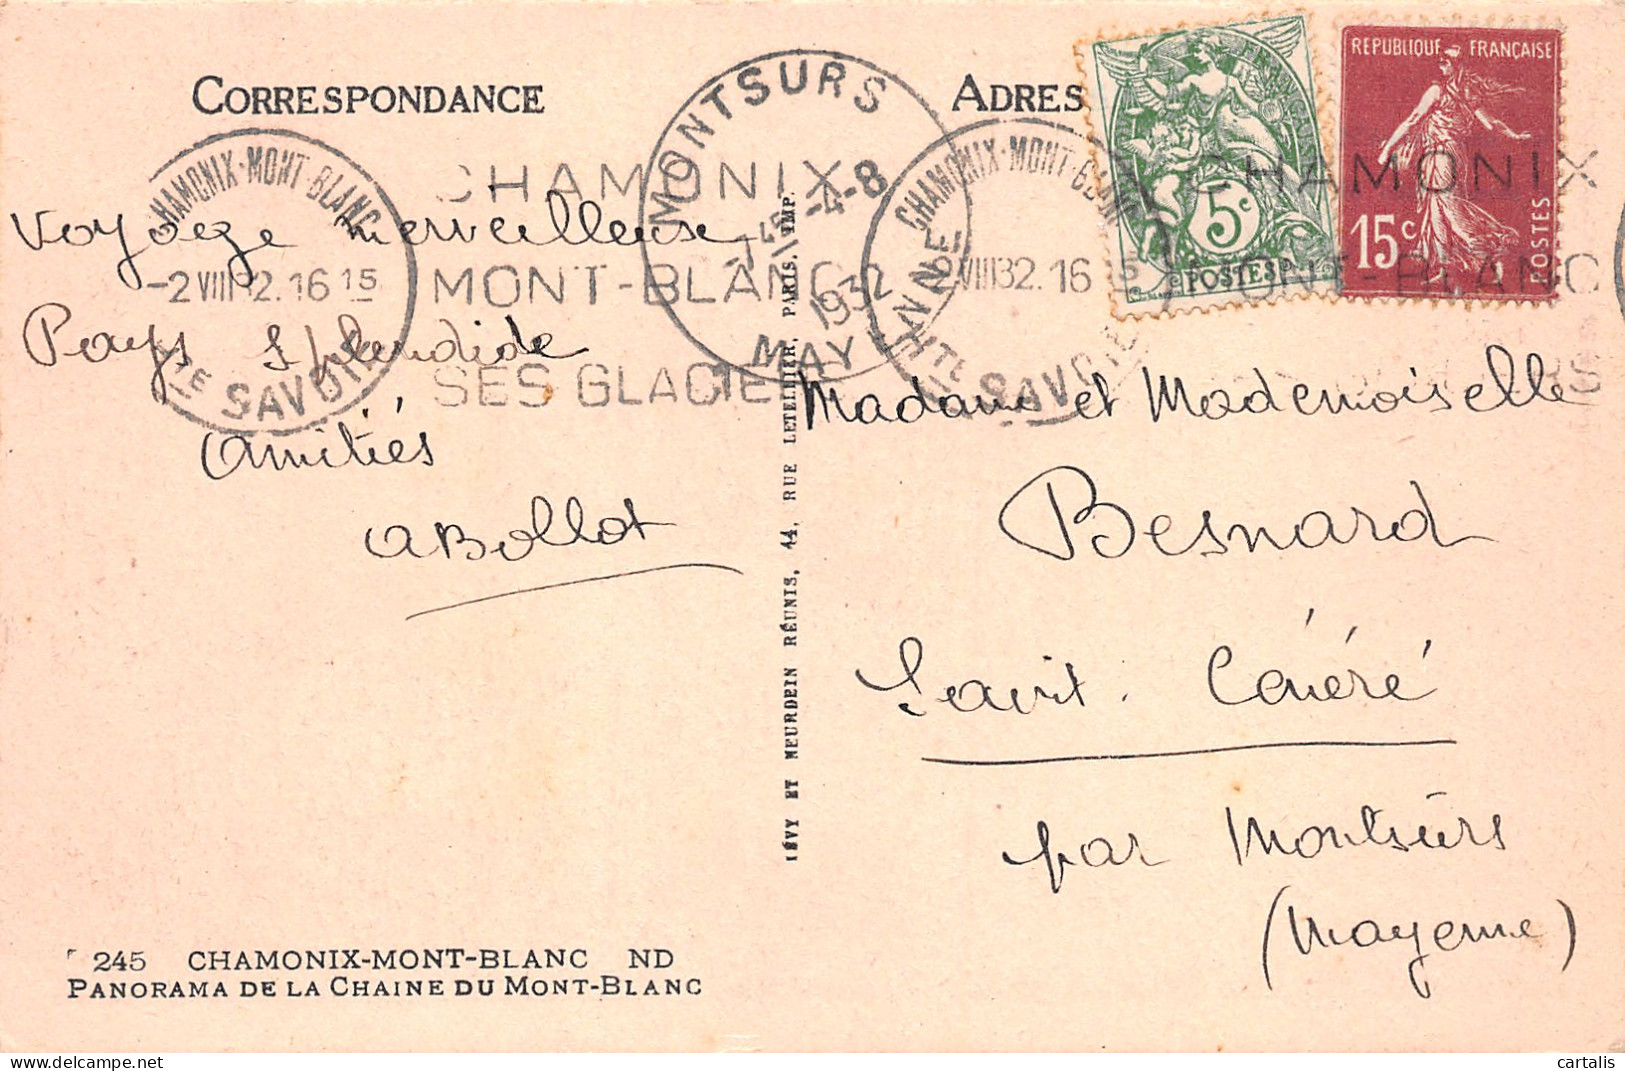 CORRESPONDANCE
ADRES
CHAMONIX-MONT-BLANC
-2 VIII 32. 16 15
HTE SAVOIE
CHAMONIX
MONT-BLANC
SES GLACIE
MONTSURS
4-8
1932
MAYENNE
CHAMONIX-MONT-BLANC
2 VIII 32. 16 15
HTE SAVOIE
CHAMONIX
MONT-BLANC
5c
POSTES
REPUBLIQUE FRANÇAISE
15c
POSTES
Voyage merveilleux
Pays splendide
Amitiés
ABollot
LÉVY ET NEURDEIN RÉUNIS, 44, RUE LETELLIER, PARIS. IMP.
Madame et Mademoiselle
Besnard
Saint. Cénéré
par Montsûrs
(Mayenne)
245 CHAMONIX-MONT-BLANC ND
PANORAMA DE LA CHAINE DU MONT-BLANC
cartalis